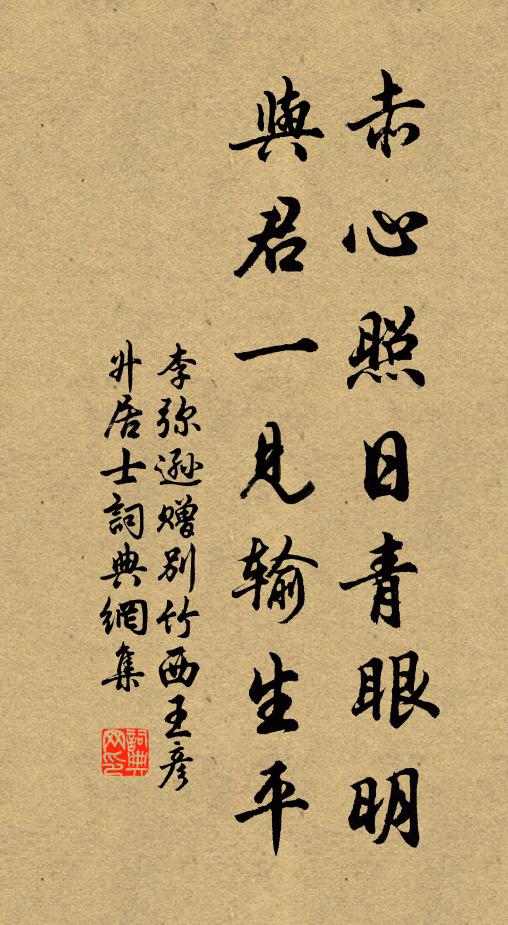 赤心照日青眼明
與君一見输生平
李弥逊赠别竹西王彦
升居士詞典網集